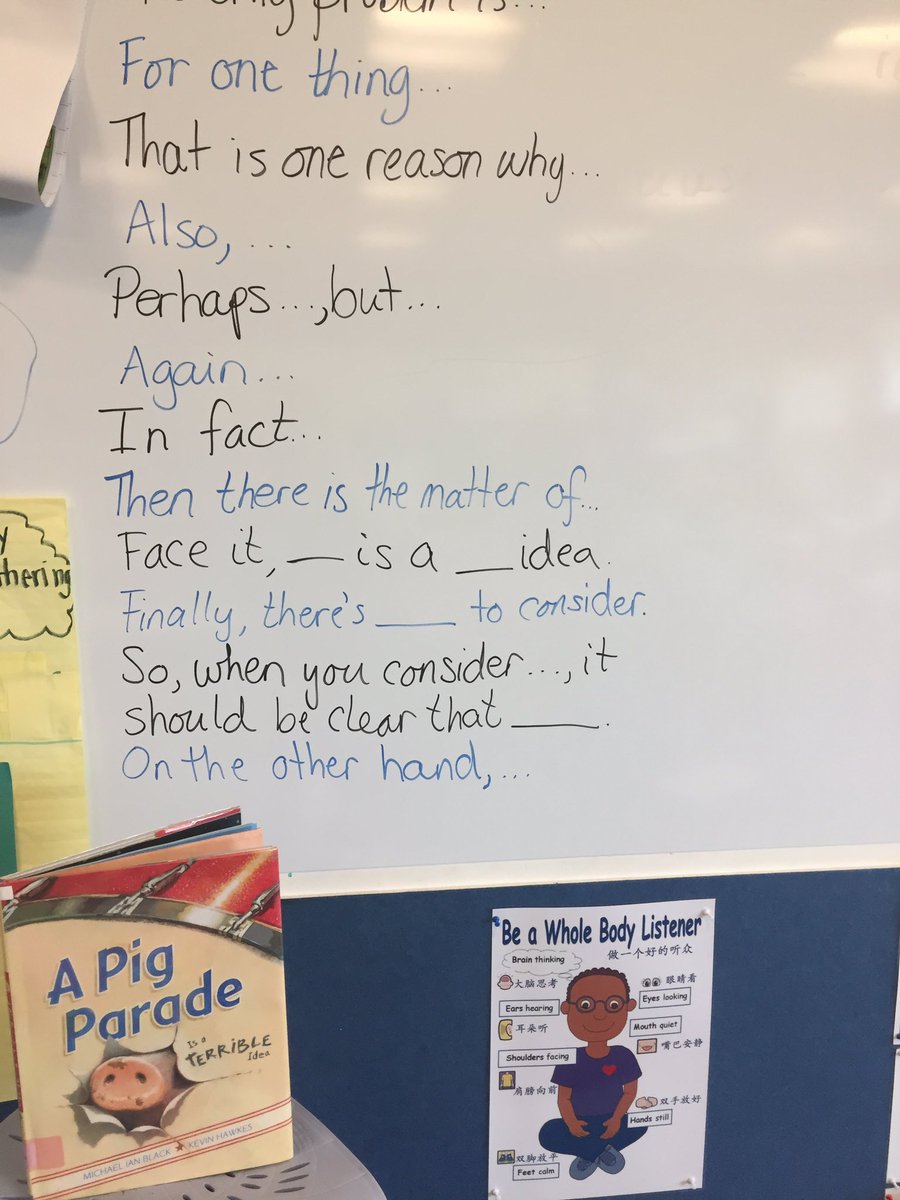 problem is...
For one thing...
That is one reason why...
Also, ...
Perhaps...,but...
Again...
In fact...
Then there is the matter of...
Face it, __ is a __ idea.
Finally, there's ____ to consider.
So, when you consider..., it
should be clear that ____.
On the other hand,...
A Pig
Parade
Is a
TERRIBLE
Idea
MICHAEL IAN BLACK ★ KEVIN HAWKES
Be a Whole Body Listener
做一个好的听众
Brain thinking
大脑思考
眼睛看
Eyes looking
Ears hearing
耳朵听
Mouth quiet
嘴巴安静
Shoulders facing
肩膀向前
双手放好
Hands still
双脚放平
Feet calm